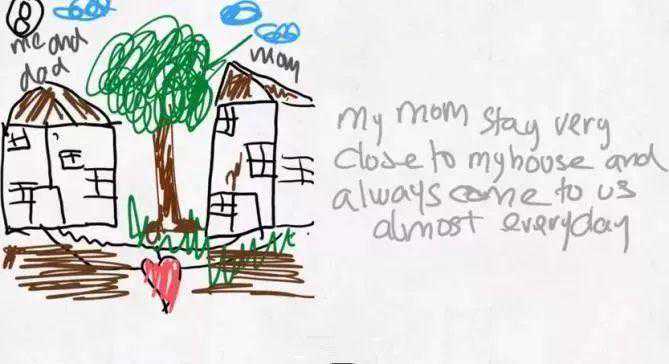 8
me and
dad
mom
my mom stay very
close to my house and
always come to us
almost everyday